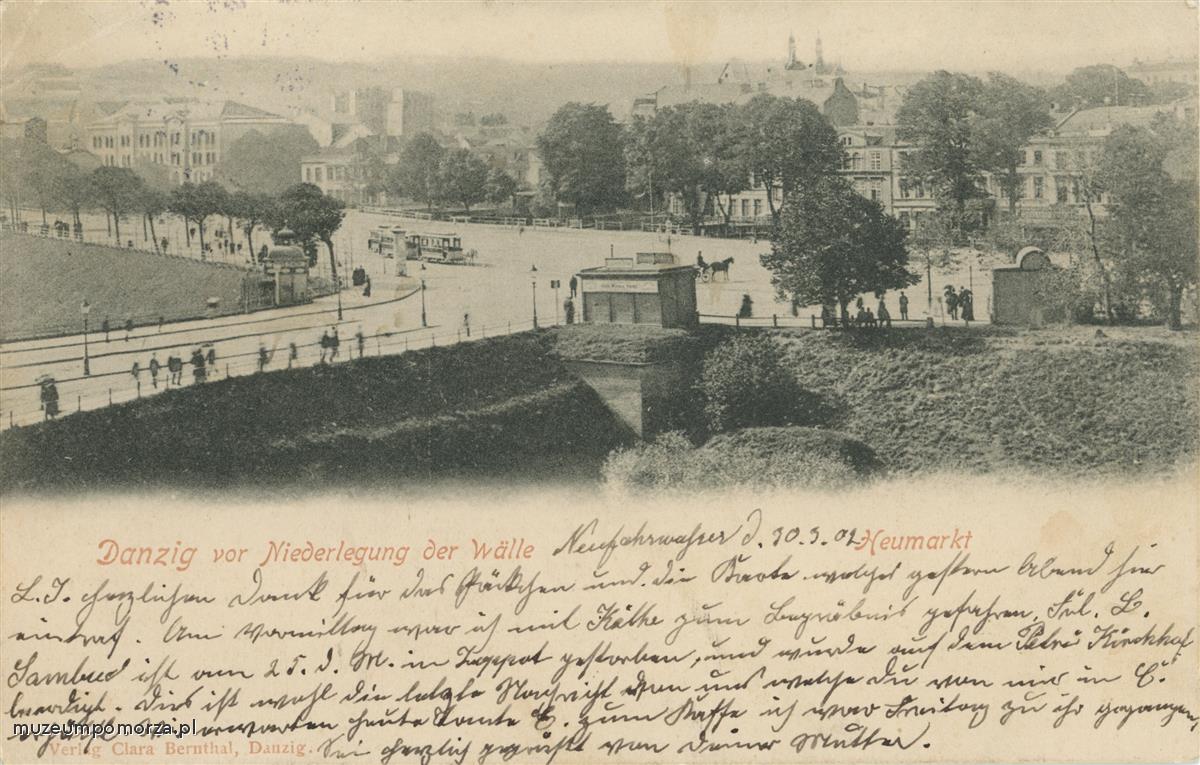 Danzig vor Niederlegung der Wälle
Heumarkt
Neufahrwasser d. 30.3.02
L. I. herzlichen Dank für das Päckchen und die Karte welches gestern Abend hier
eintraf. Am Vormittag war ich mit Käthe zum Begräbnis gefahren, Frl. L.
ist am 25. d. M. in Zoppot gestorben, und wurde auf dem Petri Kirchhof
beerdigt. Dies ist wohl die letzte Nachricht von uns welche Du von mir in E.
erwarten heute Tante E. zum Kaffe ich war Freitag zu ihr gegangen,
Sei herzlich gegrüßt von Deiner Mutter.
muzeumpomorza.pl
Verlag Clara Bernthal, Danzig.